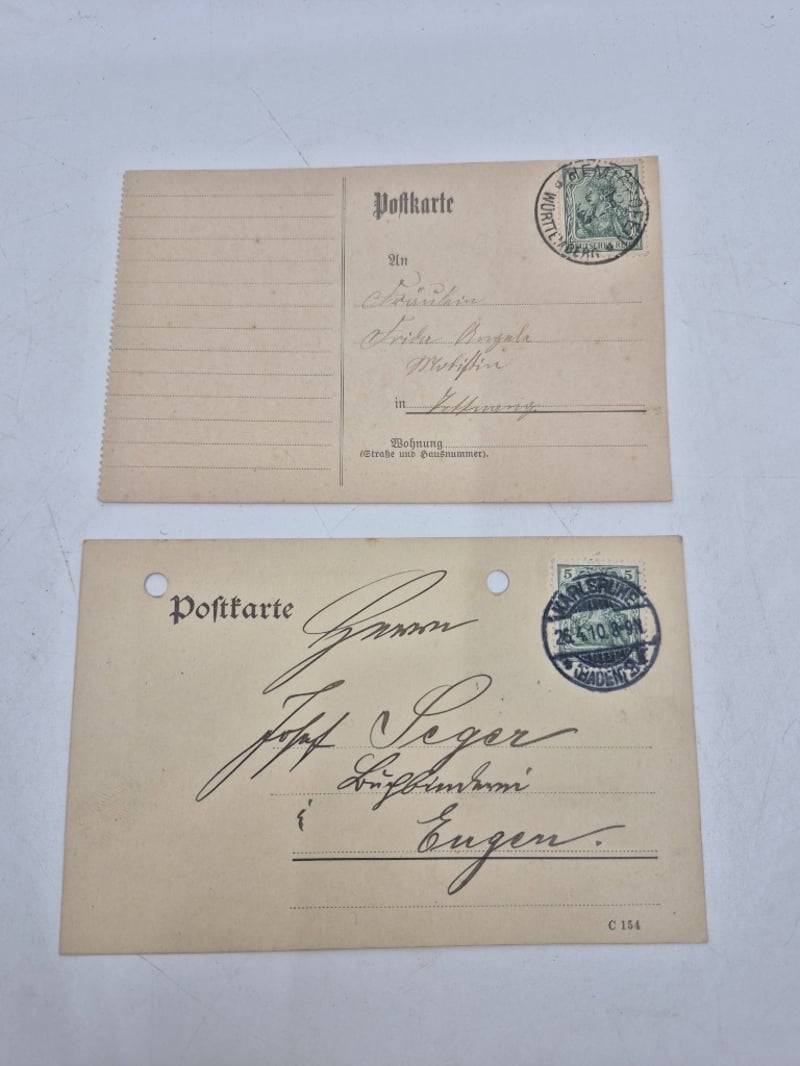 Postkarte
HEMIGKOFEN
WÜRTTEMBERG
DEUTSCHES REICH
An
Fräulein
Frida Angele
Modistin
in Tettnang.
Wohnung
(Straße und Hausnummer).
Postkarte
5 5
KARLSRUHE
26.4.10. 8-9N.
(BADEN)
Herrn
Josef Seger
Buchbinderei
i
Engen.
C 154